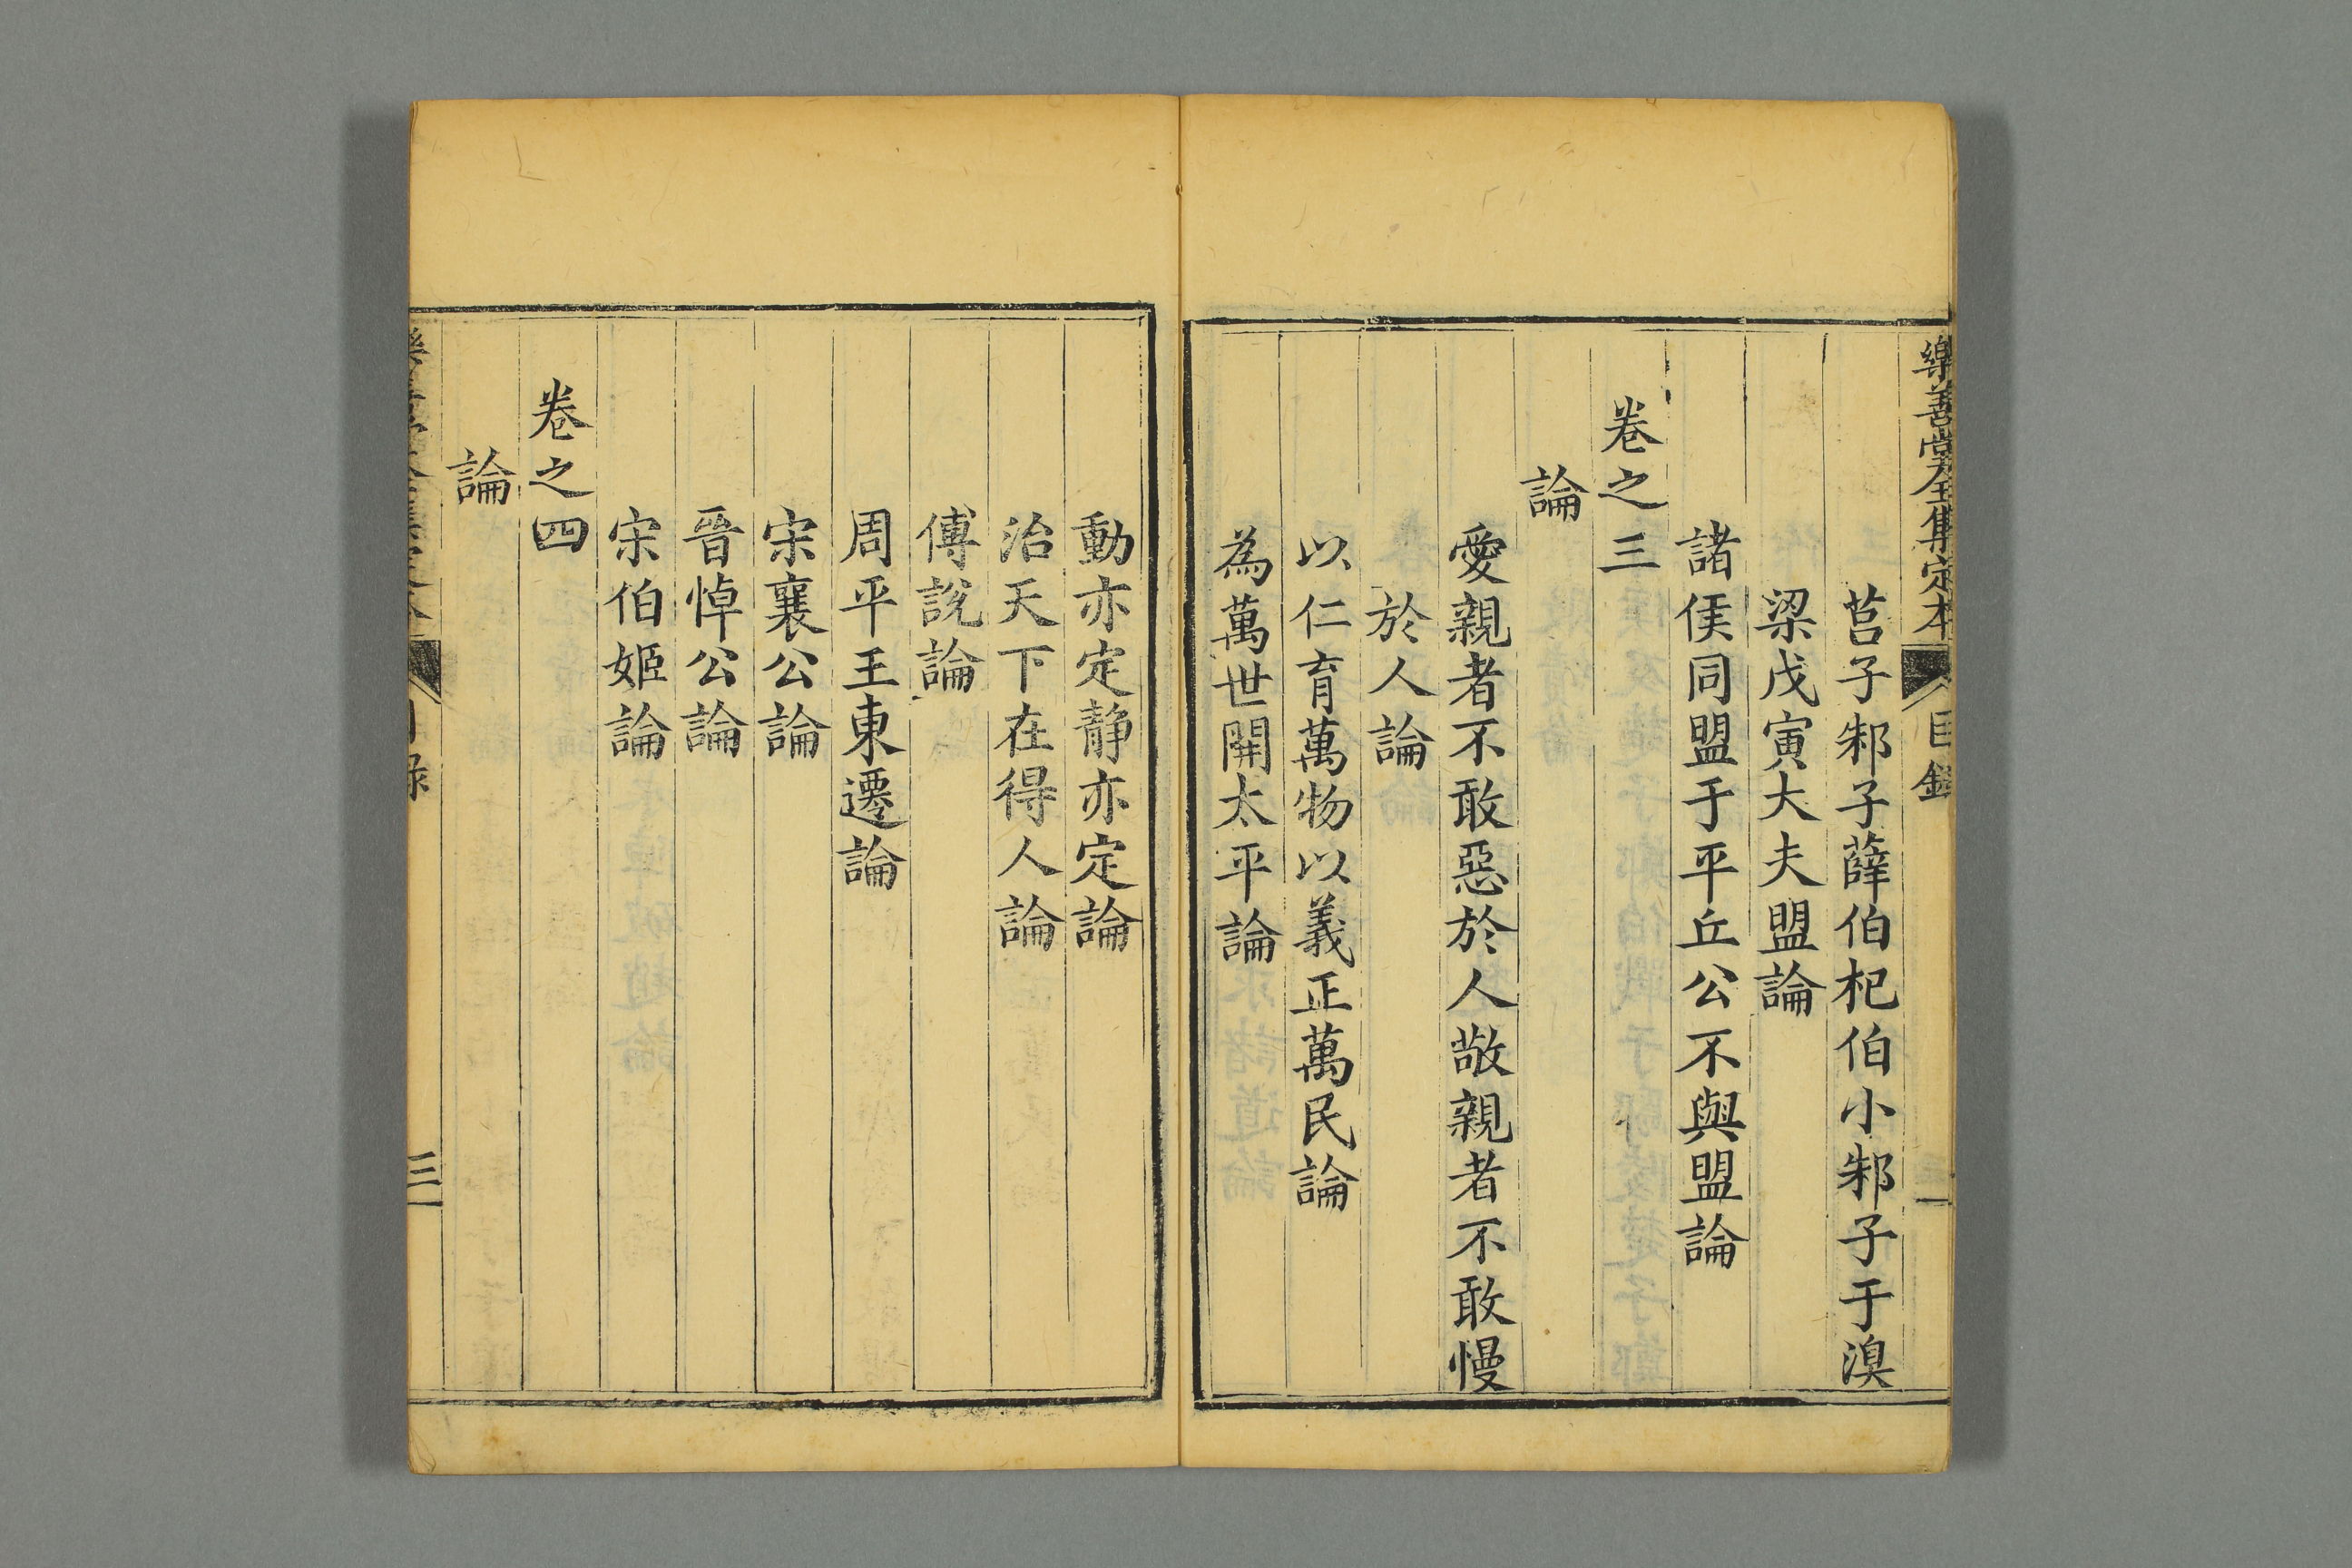 樂善堂全集定本 目錄
莒子邾子薛伯杞伯小邾子于溴
梁戊寅大夫盟論
諸侯同盟于平丘公不與盟論
卷之三
論
愛親者不敢惡於人敬親者不敢慢
於人論
以仁育萬物以義正萬民論
為萬世開太平論
動亦定静亦定論
治天下在得人論
傅說論
周平王東遷論
宋襄公論
晉悼公論
宋伯姬論
卷之四
論